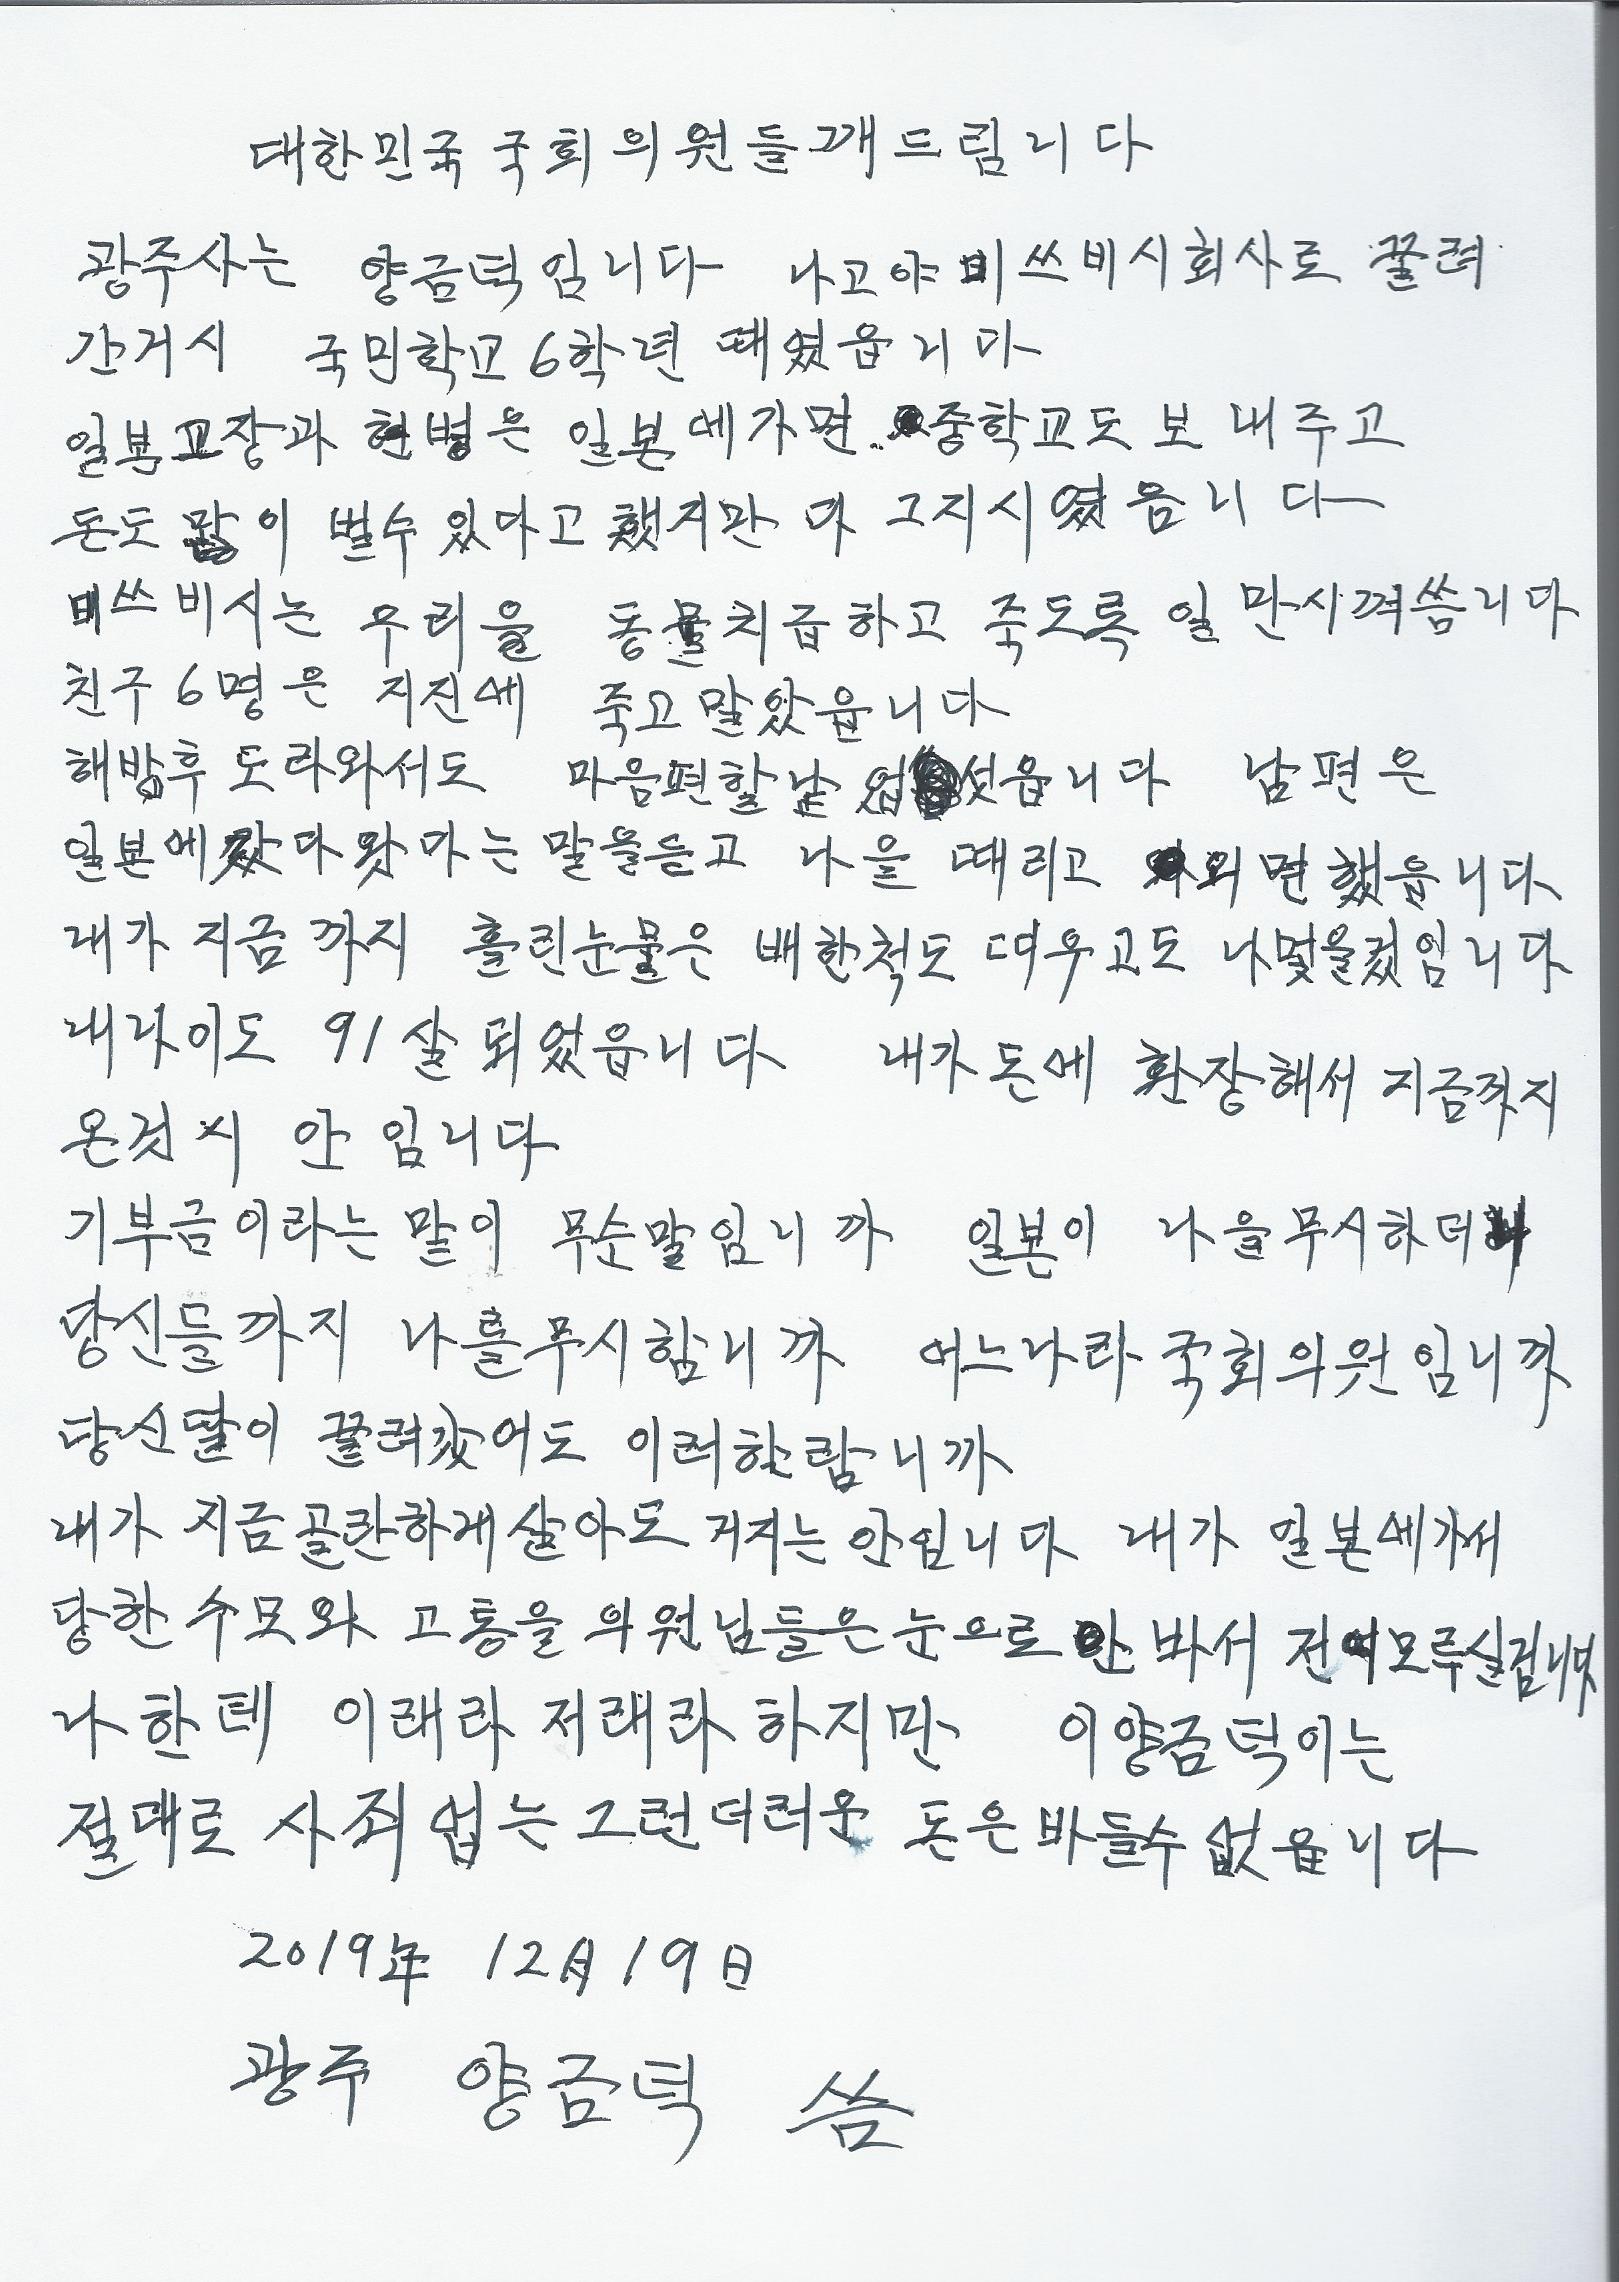 대한민국 국회의원들깨드림니다
광주사는 양금덕임니다 나고야미쓰비시회사로 끌려
간거시 국민학교6학년 때였읍니다
일본교장과 헌병은 일본에가면 중학교도 보내주고
돈도 많이 벌수있다고했지만 다 그지시였음니다
미쓰비시는 우리을 동물치급하고 죽도록 일만시켜씀니다
친구6명은 지진에 죽고말았읍니다
해방후 도라와서도 마음편할날 업섯읍니다 남편은
일본에갔다왔다는말을듣고 나을 때리고 외면했읍니다
내가 지금까지 흘린눈물은 배한척도 띠우고도 나멎을겄임니다
내나이도 91살되었읍니다 내가돈에 환장해서 지금까지
온것시 안임니다
기부금이라는 말이 무슨말임니까 일본이 나을무시하더니
당신들까지 나를무시함니까 어느나라 국회의원임니까
당신딸이 끌려갔어도 이러한람니까
내가 지금골란하게살아도 거지는 안입니다 내가 일본에가서
당한수모와 고통을 의원님들은눈으로 안바서 전여모루실검니다
나한테 이래라저래라하지만 이양금덕이는
절대로 사죄업는그런더러운 돈은바들수없읍니다
2019年 12月19日
광주 양금덕 씀